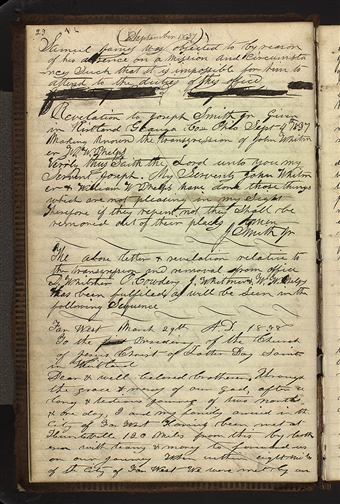 (September 1837)
Samuel James was objected to by reason
of his absence on a Mission and circumsta
nces Such that it is impossible for him to
attend to the duties of this office
Revelation to Joseph Smith Jr Given
in Kirtland Geauga Co Ohio Sept 4th 1837
Making known the transgression of John Whitm
er W W Phelps
Verily thus Saith the Lord unto you my
Servent Joseph. My Servents John Whitm
er & William W Phelps have done those things
which are not pleasing in my Sight
Therefore if they repent not they Shall be
removed out of their places Amen
J Smith Jr
The above letter & revelation relative to
the transgression and removal from office
D Whitmer O Cowdery J Whitmer & W. W. Phelps
has been fulfilled as will be Seen in the
following Sequence
Far West March 29th A.D. 1838
To the Presidency of the Church
of Jesus Christ of Latter Day Saints
in Kirtland
Dear & well beloved brotheren, Through
the grace & mercy of our God, after a
long & tedious journey of two months
& one day, I and my family arrived in the
City of Far West Having been met at
Huntsville 120 Miles from this by broth
eren with teams & money to forward us
on our journey When within eight miles
of the City of Far West We were met by an